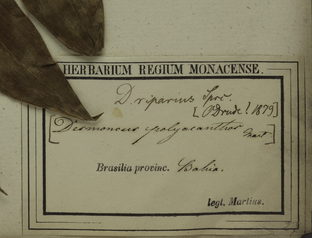 HERBARIUM REGIUM MONACENSE.
D. riparius Spr.
[Drude! 1879]
[Desmoncus polyacanthos Mart]
Brasilia provinc. Bahia.
legt. Martius.